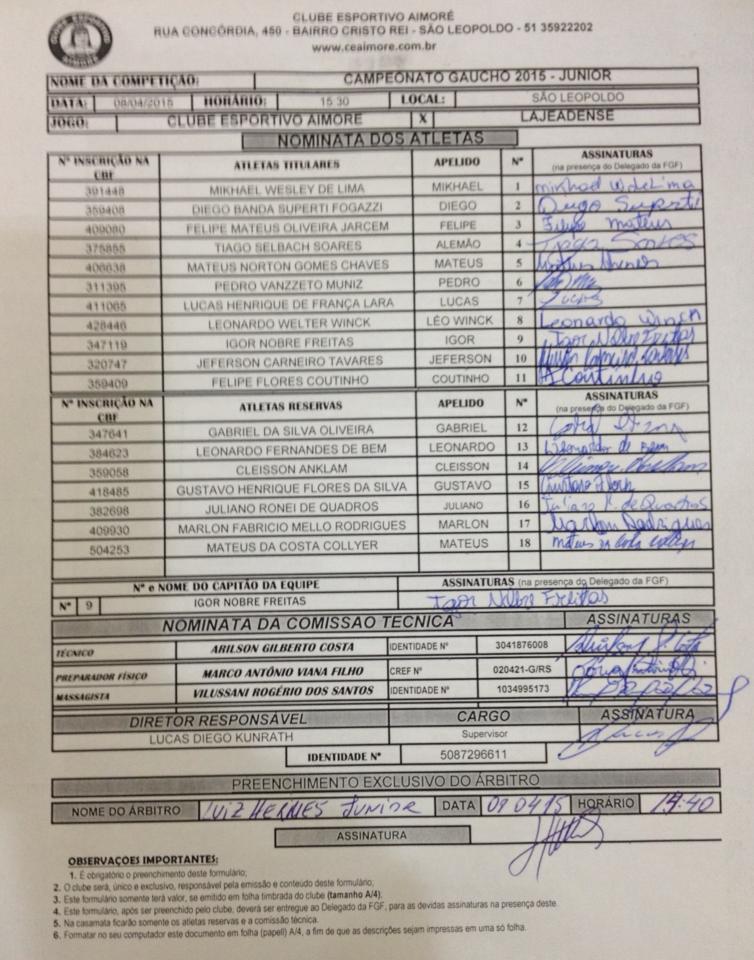 CLUBE ESPORTIVO AIMORÉ
RUA CONCÓRDIA, 450 - BAIRRO CRISTO REI - SÃO LEOPOLDO - 51 35922202
www.ceaimore.com.br
NOME DA COMPETIÇÃO: CAMPEONATO GAUCHO 2015 - JUNIOR
DATA: 08/04/2015 HORÁRIO: 15 30 LOCAL: SÃO LEOPOLDO
JOGO: CLUBE ESPORTIVO AIMORE X LAJEADENSE
NOMINATA DOS ATLETAS
Nº INSCRIÇÃO NA CBF ATLETAS TITULARES APELIDO Nº ASSINATURAS (na presença do Delegado da FGF)
391448 MIKHAEL WESLEY DE LIMA MIKHAEL 1
359408 DIEGO BANDA SUPERTI FOGAZZI DIEGO 2 Diego Superti
409080 FELIPE MATEUS OLIVEIRA JARCEM FELIPE 3 Filipe mateus
375855 TIAGO SELBACH SOARES ALEMÃO 4
406638 MATEUS NORTON GOMES CHAVES MATEUS 5
311395 PEDRO VANZZETO MUNIZ PEDRO 6
411065 LUCAS HENRIQUE DE FRANÇA LARA LUCAS 7 Lucas
428446 LEONARDO WELTER WINCK LÉO WINCK 8 Leonardo Winck
347119 IGOR NOBRE FREITAS IGOR 9 Igor Nobre Freitas
320747 JEFERSON CARNEIRO TAVARES JEFERSON 10
359409 FELIPE FLORES COUTINHO COUTINHO 11 Coutinho
Nº INSCRIÇÃO NA CBF ATLETAS RESERVAS APELIDO Nº ASSINATURAS (na presença do Delegado da FGF)
347641 GABRIEL DA SILVA OLIVEIRA GABRIEL 12
384623 LEONARDO FERNANDES DE BEM LEONARDO 13
359058 CLEISSON ANKLAM CLEISSON 14
418485 GUSTAVO HENRIQUE FLORES DA SILVA GUSTAVO 15
382698 JULIANO RONEI DE QUADROS JULIANO 16 Juliano R. de Quadros
409930 MARLON FABRICIO MELLO RODRIGUES MARLON 17 Marlon Rodrigues
504253 MATEUS DA COSTA COLLYER MATEUS 18 mateus da costa collyer
Nº e NOME DO CAPITÃO DA EQUIPE ASSINATURAS (na presença do Delegado da FGF)
Nº 9 IGOR NOBRE FREITAS Igor Nobre Freitas
NOMINATA DA COMISSÃO TECNICA ASSINATURAS
TÉCNICO ARILSON GILBERTO COSTA IDENTIDADE Nº 3041876008
PREPARADOR FÍSICO MARCO ANTÔNIO VIANA FILHO CREF Nº 020421-G/RS
MASSAGISTA VILUSSANI ROGÉRIO DOS SANTOS IDENTIDADE Nº 1034995173
DIRETOR RESPONSÁVEL CARGO ASSINATURA
LUCAS DIEGO KUNRATH Supervisor
IDENTIDADE Nº 5087296611
PREENCHIMENTO EXCLUSIVO DO ÁRBITRO
NOME DO ÁRBITRO LUIZ HERMES JUNIOR DATA 090415 HORÁRIO 14:40
ASSINATURA
OBSERVAÇOES IMPORTANTES:
1. É obrigatório o preenchimento deste formulário;
2. O clube será, único e exclusivo, responsável pela emissão e conteúdo deste formulário;
3. Este formulário somente terá valor, se emitido em folha timbrada do clube (tamanho A/4).
4. Este formulário, após ser preenchido pelo clube, deverá ser entregue ao Delegado da FGF, para as devidas assinaturas na presença deste.
5. Na casamata ficarão somente os atletas reservas e a comissão técnica.
6. Formatar no seu computador este documento em folha (papel) A/4, a fim de que as descrições sejam impressas em uma só folha.